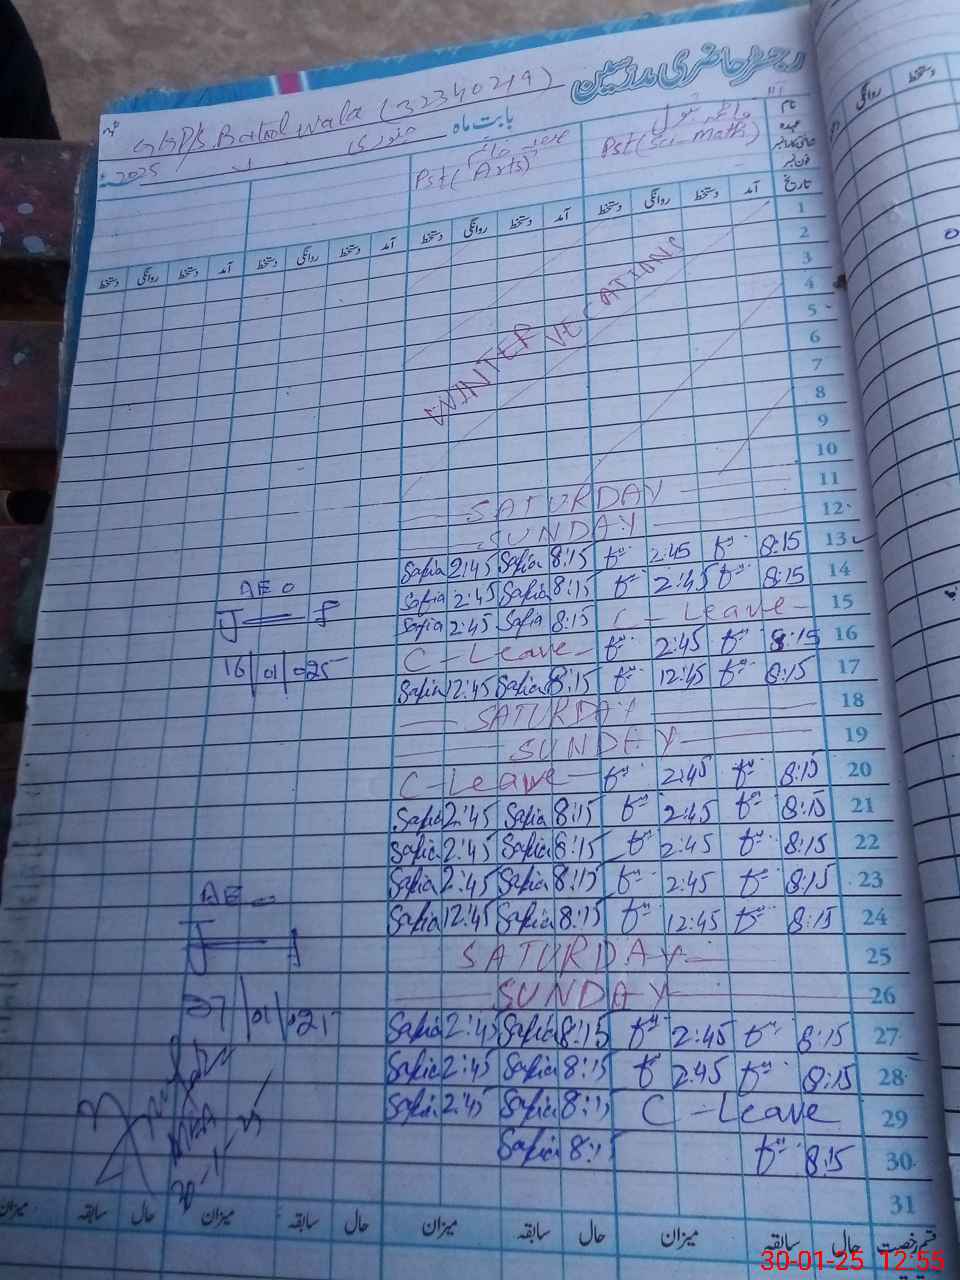 رجسٹر حاضری مدرسین
GGPS Batool wala (32340219)
بابت ماہ جنوری 2025
Pst (Sci-Math)
Pst (Arts)
نام
عہدہ
تاریخ آمد دستخط روانگی دستخط آمد دستخط روانگی دستخط آمد دستخط روانگی دستخط آمد دستخط روانگی دستخط
1
2
3
4
5
6
7
8
9
10
WINTER VECATIONS
11 SATURDAY
12 SUNDAY
13 8:15 2:45 8:15 Safia 2:45 Safia
14 8:15 2:45 8:15 Safia 2:45 Safia
AEO
15 C-Leave 8:15 Safia 2:45 Safia
16 8:15 2:45 C-Leave
16/01/025
17 8:15 12:45 8:15 Safia 12:45 Safia
18 SATURDAY
19 SUNDAY
20 8:15 2:45 C-Leave
21 8:15 2:45 8:15 Safia 2:45 Safia
22 8:15 2:45 8:15 Safia 2:45 Safia
23 8:15 2:45 8:15 Safia 2:45 Safia
24 8:15 12:45 8:15 Safia 12:45 Safia
25 SATURDAY
26 SUNDAY
27/01/025
27 8:15 2:45 8:15 Safia 2:45 Safia
28 8:15 2:45 8:15 Safia 2:45 Safia
29 C-Leave 8:15 Safia 2:45 Safia
30 8:15 8:15 Safia
31
قسم رخصت حال سابقہ میزان حال سابقہ میزان حال سابقہ میزان حال سابقہ میزان
30-01-25 12:55